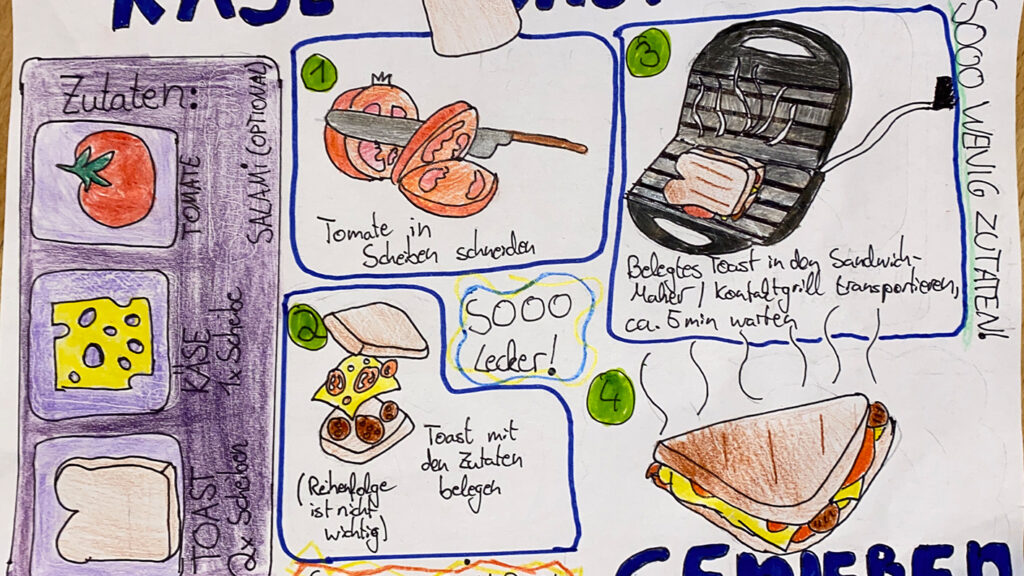 KÄSE
Zutaten:
TOMATE
SALAMI (OPTIONAL)
KÄSE
1x Scheibe
TOAST
2x Scheiben
1
Tomate in
Scheiben schneiden
2
Toast mit
den Zutaten
belegen
(Reihenfolge
ist nicht
wichtig)
SOOO
lecker!
3
Belegtes Toast in den Sandwich-
Maker / Kontaktgrill transportieren,
ca. 5 min warten
SOOO WENIG ZUTATEN!
4
GENIEßEN